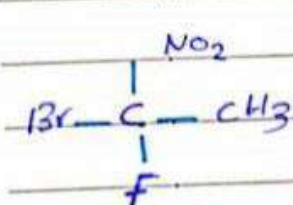 NO2
Br C CH3
F